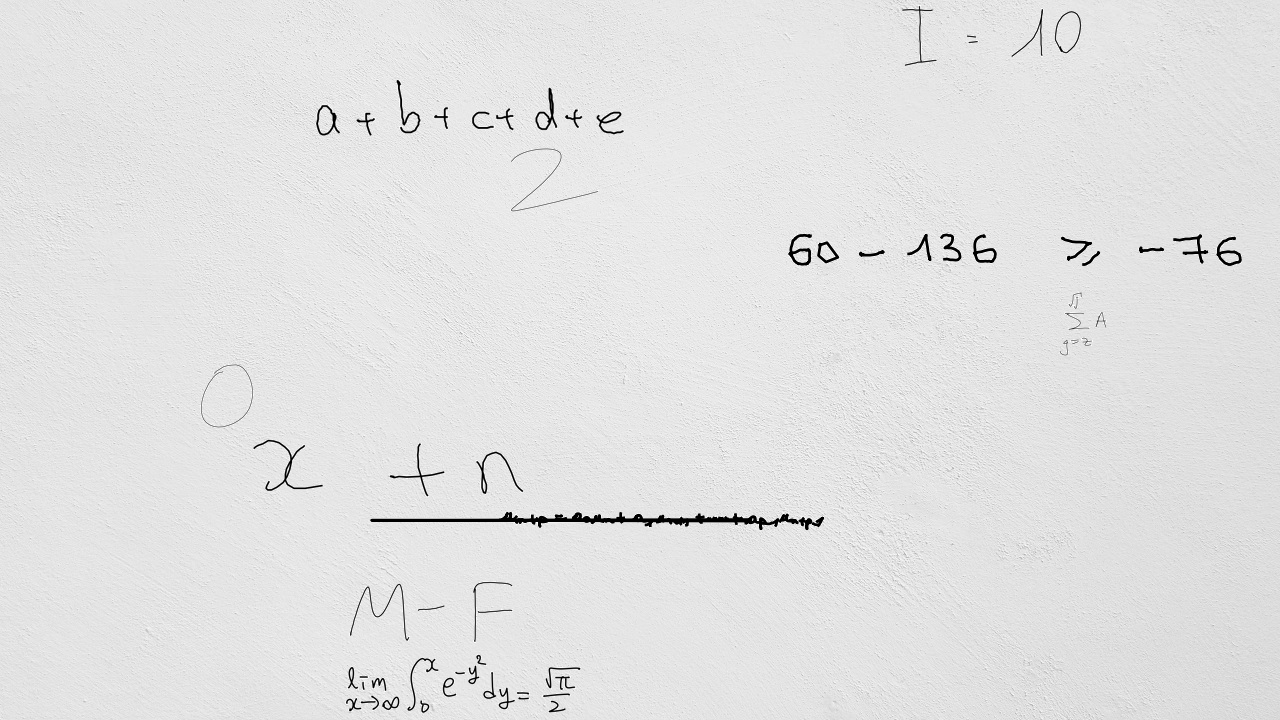 I = 10
a + b + c + d + e
2
60 - 136 ⩾ -76
\sum_{g=z}^{\sqrt{\pi}} A
0
x + n
M - F
\lim_{x \to \infty} \int_0^x e^{-y^2} dy = \frac{\sqrt{\pi}}{2}